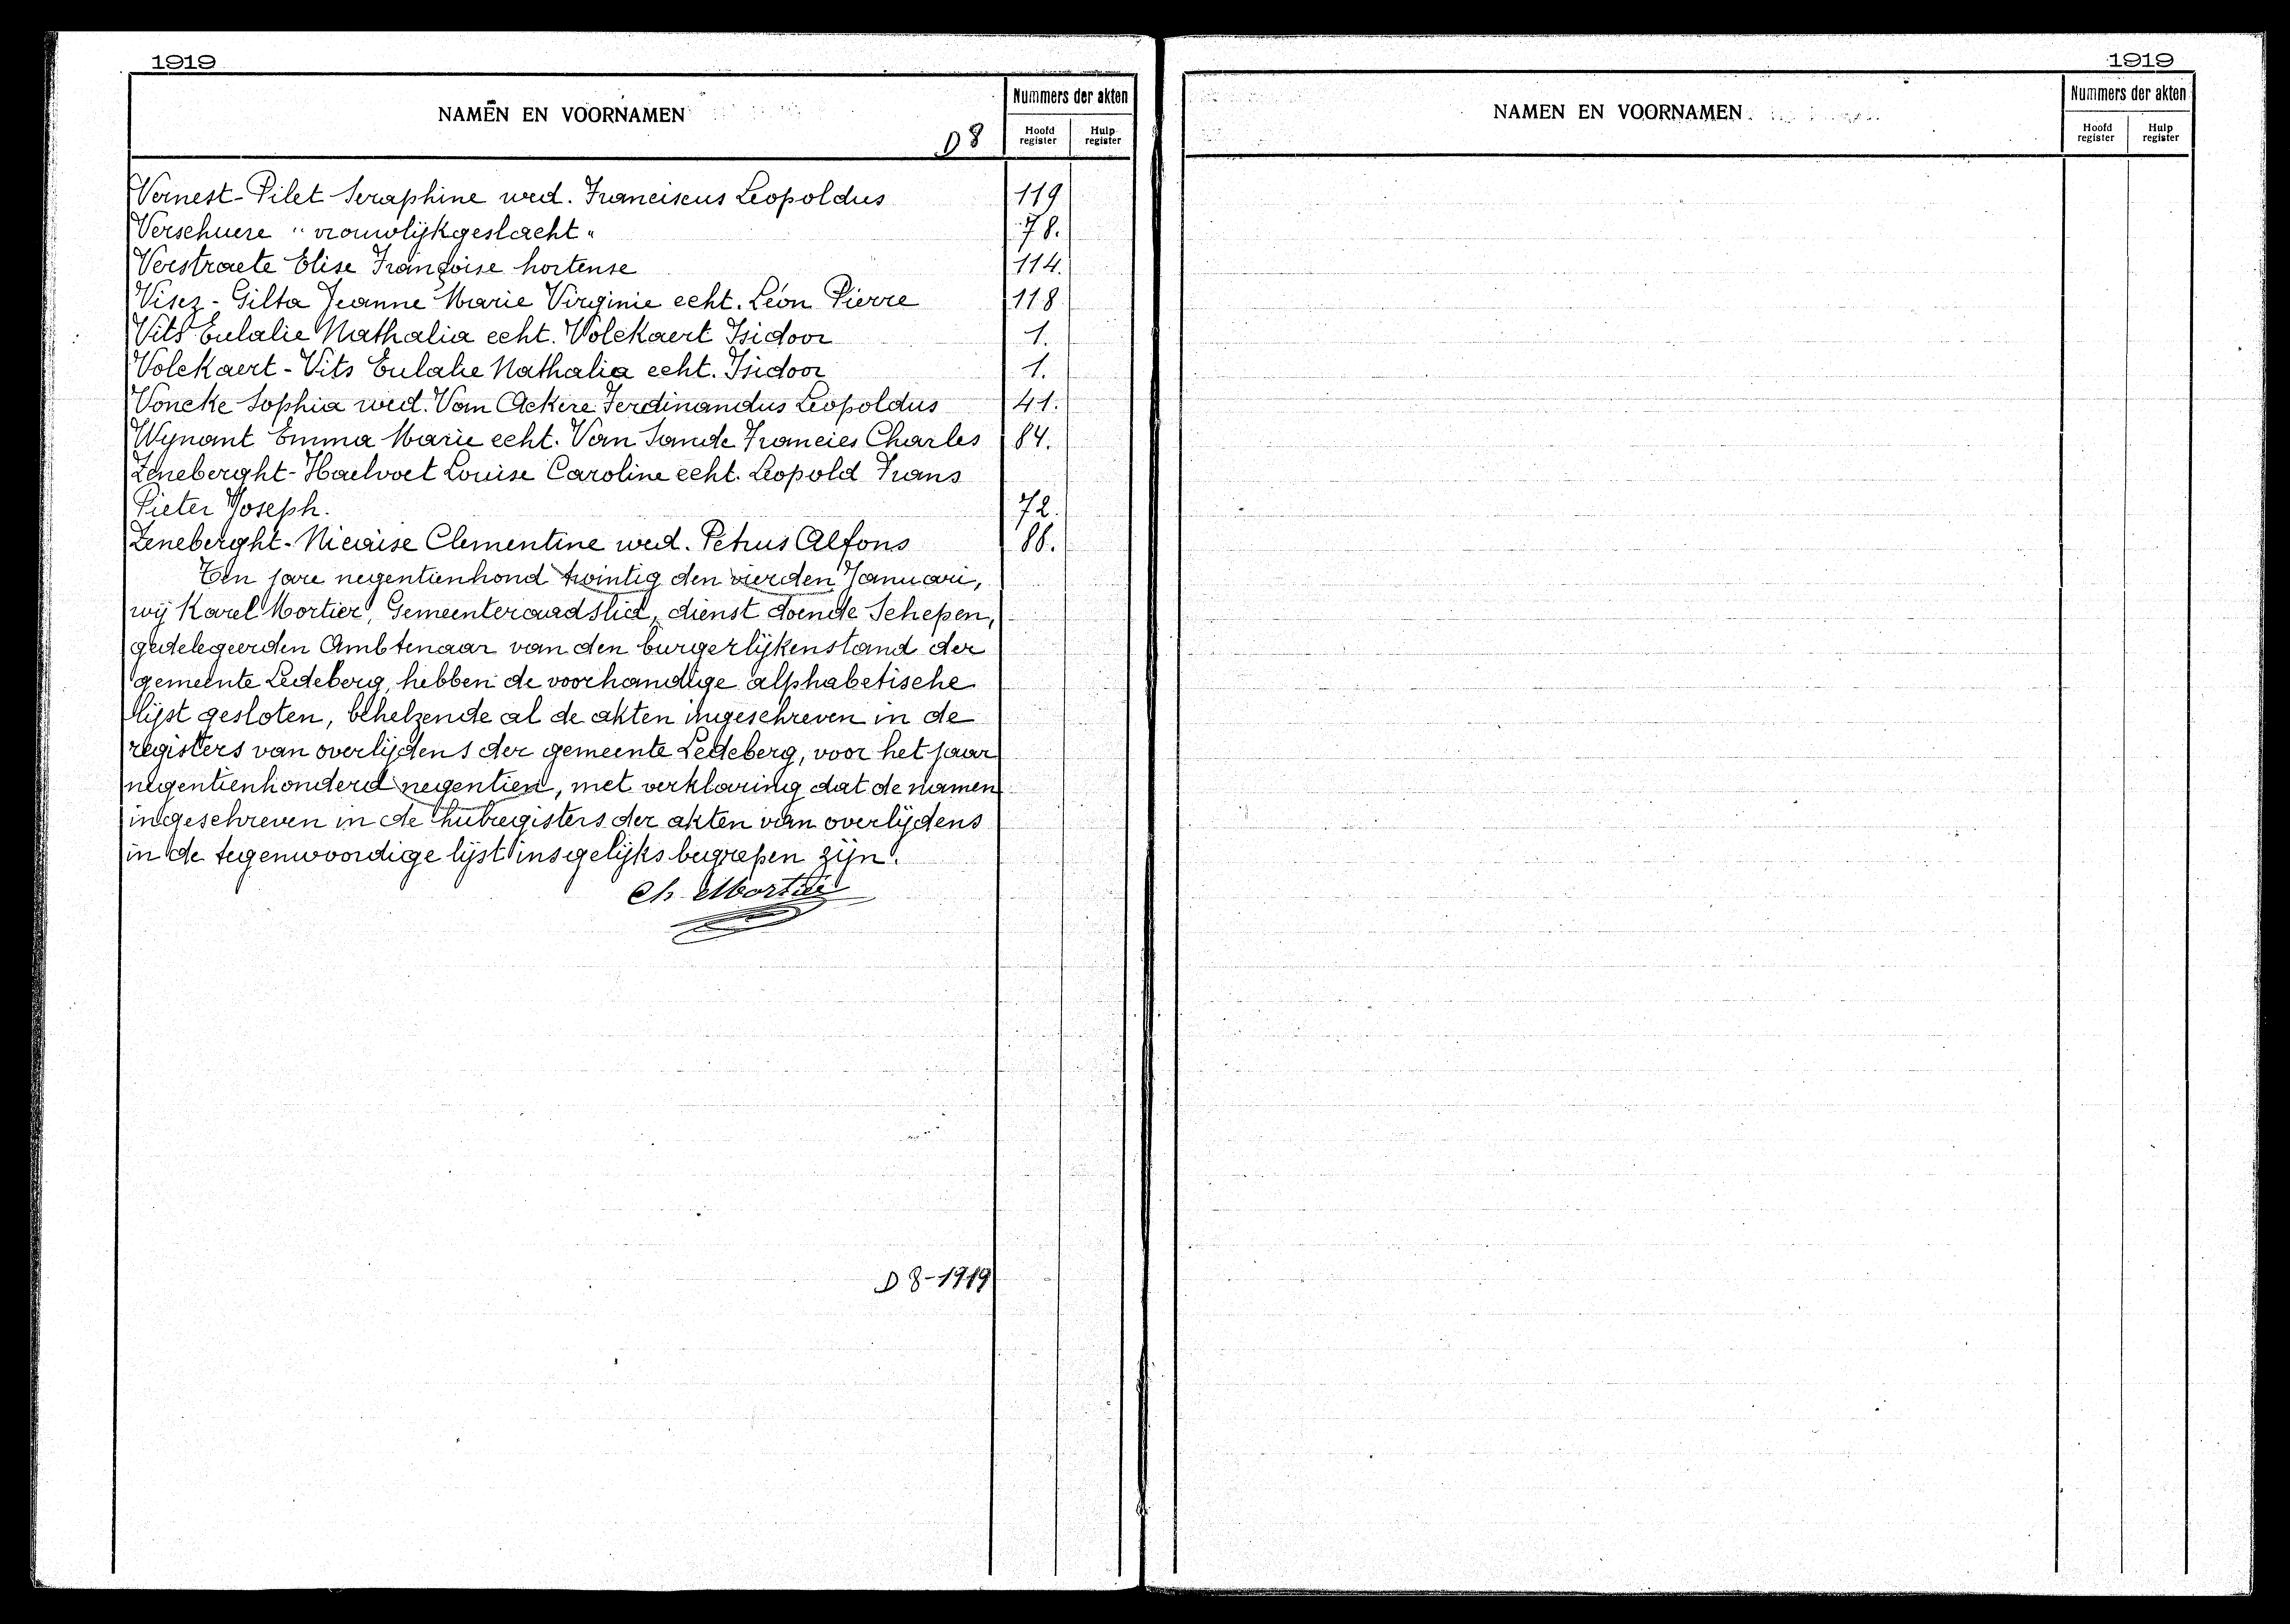 1919
NAMEN EN VOORNAMEN
D 8
Nummers der akten
Hoofd register
Hulp register
Vernest-Pilet Seraphine wed. Franciscus Leopoldus 119
Verschuere "vrouwlijkgeslacht" 78.
Verstraete Elise Françoise hortense 114.
Visez-Gilta Jeanne Marie Virginie echt. Léon Pierre 118
Vits Eulalie Nathalia echt. Volckaert Isidoor 1.
Volckaert-Vits Eulalie Nathalia echt. Isidoor 1.
Voncke Sophia wed. Van Ackere Ferdinandus Leopoldus 41.
Wynant Emma Marie echt. Van Sande Francies Charles 84.
Zeneberght-Haelvoet Louise Caroline echt. Leopold Frans
Pieter Joseph. 72.
Zeneberght-Nicaise Clementine wed. Petrus Alfons 88.
Ten jare negentienhond twintig den vierden Januari,
wij Karel Mortier, Gemeenteraadslid, dienst doende Schepen,
gedelegeerden Ambtenaar van den burgerlijkenstand der
gemeente Ledeberg, hebben de voorhandige alphabetische
lijst gesloten, behelzende al de akten ingeschreven in de
registers van overlijdens der gemeente Ledeberg, voor het jaar
negentienhonderd negentien, met verklaring dat de namen
ingeschreven in de hulregisters der akten van overlijdens
in de tegenwoordige lijst insgelijks begrepen zijn.
Ch. Mortier
D 8-1919
1919
NAMEN EN VOORNAMEN
Nummers der akten
Hoofd register
Hulp register